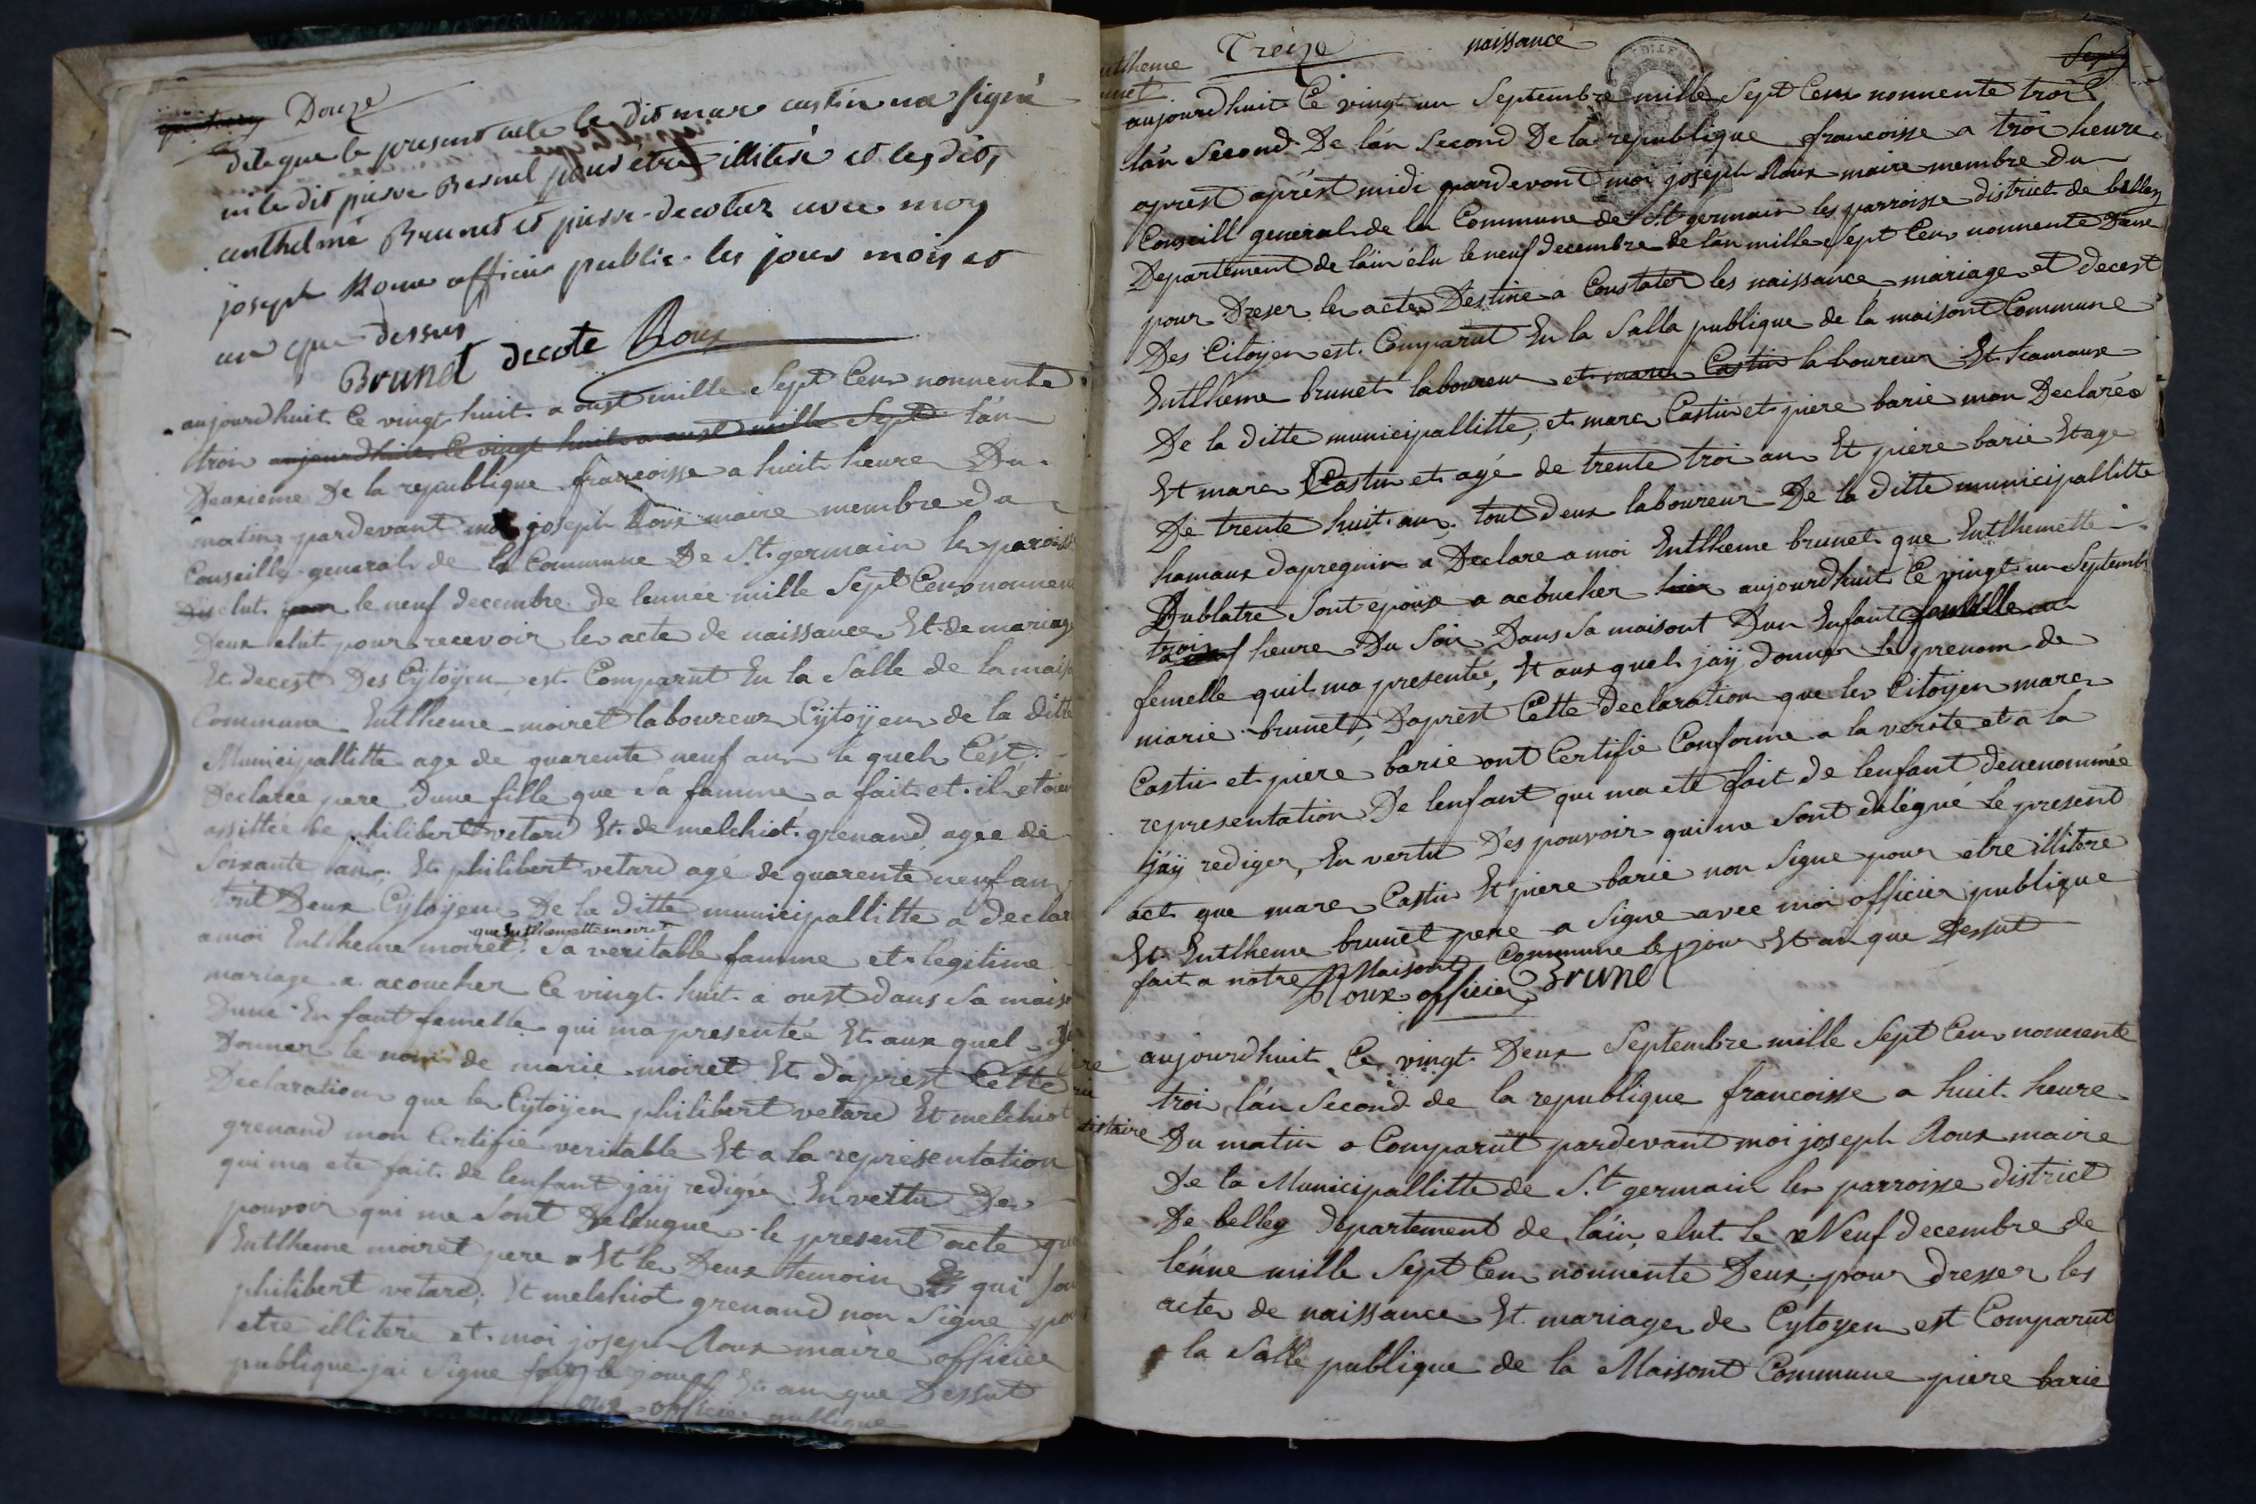 Douze
delegue le present acte le dit marc castin na signé
ni le dit pierre Bernel pour etre illiteré et les dits
anthelme Brunet et pierre decotes avec moy
joseph Roux officier public les jour mois et
an que dessus
Brunet decote Roux
aujourdhuit Ce vingt huit a oust mille Sept Cens nonnente
troi aujourdhuit Ce vingt huit a oust mille Sept lán
Deuxieme De la republique francoisse a huit heure Du
matin pardevant moi joseph Roux maire membre Du
Conseille general de la Commune De St. germain les paroiss
elut le neuf decembre de lennée mille Sept Cens nonnen
Deux elut pour recevoir les acte de naissance Et de mariag
Et decest Des Cytoyen est Comparut En la Salle de la mais
Commune Entlheme moiret laboureur Cytoÿen de la ditte
Municipallitte age de quarente neuf an le quel Cést
Declarée pere Dune fille que Sa famme a fait et il etoit
assittée de philibert vetard Et de melchiot grenand agee de
Soixante an, Et philibert vetard agé de quarente neuf an
tout Deux Cytoyen De la ditte municipallitte a declar
que Entlhemette moiret
amoi Entlheme moiret Sa veritable famme et legitime
mariage a acoucher Ce vingt huit a oust dans Sa mais
Dune En fant femelle qui ma presentée Et aux quel
Donner le nom de marie moiret Et d'aprest Cette
Declaration que les Cytoÿen philibert vetard Et melchiot
grenand mon Certifie veritable Et a la representation
qui ma ete fait de lenfant jaÿ rediger En vertu Des
pouvoir qui me Sont Delengue le present acte que
Entlheme moiret pere Et les Deux temoin qui Son
philibert vetard, Et melchiot grenand non Signe pou
etre illitere et moi joseph Roux maire officier
publique jai Signe le jour Et an que Dessut
Roux officie publique
Entlheme
brunet
Treize naissance
aujourdhuit Ce vingt un Septembre mille Sept Cens nonnente troi
lán Second De lán Second De la republique francoisse a troi heure
aprest aprést midi pardevant moi joseph Roux maire membre Du
Conseill general de la Commune de St. germain les parroisse district de belley
Departement de láin élu le neuf decembre de lán mille Sept Cens nonnente Deux
pour Dreser les acte Destine a Constater les naissance mariage et decest
Des Citoyen est Comparut En la Salla publique de la maisont Commune
Entlheme brunet laboureur et marc Castin laboureur Et hamaux
De la ditte municipallitte, et marc Castin et piere barie mon Declarée
Et marc Castin et agé de trente troi an Et piere barie Et age
De trente huit an, tout deux laboureur De la ditte municipallitte
hamaux dapregnin a Declare a moi Entlheme brunet que Entlhemette
Dublatre Sont epouse a acoucher hier aujourdhuit Ce vingt un Septemb
trois heure Du Soir Dans Sa maisont Dun Enfant
femelle quil ma presentée, Et aux quel jaÿ donner le prenom de
marie brunet, Daprest Cette Declaration que les Citoyen marc
Castin et piere barie ont Certifie Conforme a la verite et a la
representation De lenfant qui ma ete fait de lenfant denenommée
jaÿ rediger, En vertu Dés pouvoir qui me Sont delégué Le present
act que marc Castin Et piere barie non Signe pour etre illitere
Et Entlheme brunet pere a Signe avec moi officier publique
fait a notre Maisont Commune le jour Et an que Dessut
Roux officier Brunet
aujourdhuit Ce vingt Deux Septembre mille Sept Cens nonnente
troi lán Second de la republique francoisse a huit heure
Du matin a Comparut pardevant moi joseph Roux maire
De la Municipallitte de S.t germain les parroisse district
De belley departement de láin, elut le Neuf decembre de
lénne mille Sept Cens nonnente Deux, pour dresser les
acte de naissance Et mariage de Cytoyen est Comparut
a la Salle publique de la Maisont Commune piere barie